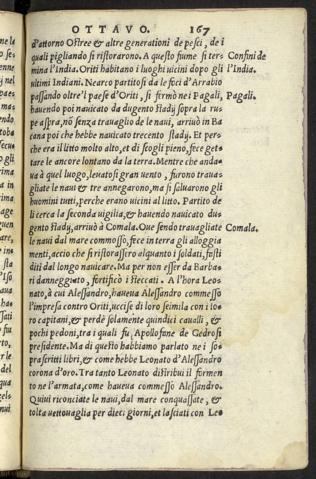 OTTAVO. 167
d'attorno Ostree & altre generationi de pesci, de i
quali pigliando si ristorarono. A questo fiume si ter= Confini de
mina l'India. Oriti habitano i luoghi uicini dopo gli l'India.
ultimi Indiani. Nearco partitosi da le foci d'Arrabio
passando oltre'l paese d'Oriti, si fermò ne i Pagali, Pagali.
hauendo poi nauicato da dugento stadij sopra la ru=
pe aspra, nō senza trauaglio de le naui, arriuò in Ba
cana poi che hebbe nauicato trecento stady. Et per=
che era il litto molto alto, et di scogli pieno, fece get=
tare le ancore lontano da la terra. Mentre che anda=
ua à quel luogo, leuatosi gran uento, furono trauа=
gliate le naui & tre annegarono, ma si saluarono gli
huomini tutti, perche erano uicini al litto. Partito de
li cerca la seconda uigilia, & hauendo nauicato du=
gento stady, arriuò à Comala. Que sendo trauagliate Comala.
le naui dal mare commosso, fece in terra gli alloggia
menti, accio che si ristorassero alquanto i soldati, fasti
diti dal longo nauicare. Ma per non esser da Barba=
ri danneggiato, fortificò i steccati. A l'hora Leo=
nato, à cui Alessandro, haueua Alessandro commesso
l'impresa contro Oriti, uccise di loro seimila con i lo=
ro capitani, & perdè solamente quindici caualli, &
pochi pedoni, tra i quali fu, Apollofane de Gedrosi
presidente. Ma di questo habbiamo parlato ne i so=
prascritti libri, & come hebbe Leonato d'Alessandro
corona d'oro. Tra tanto Leonato distribui il formen
to ne l'armata, come haueua commesso Alessandro.
Quiui riconciate le naui, dal mare conquassate, &
tolta uettouaglia per dieci giorni, et lasciati con Leo